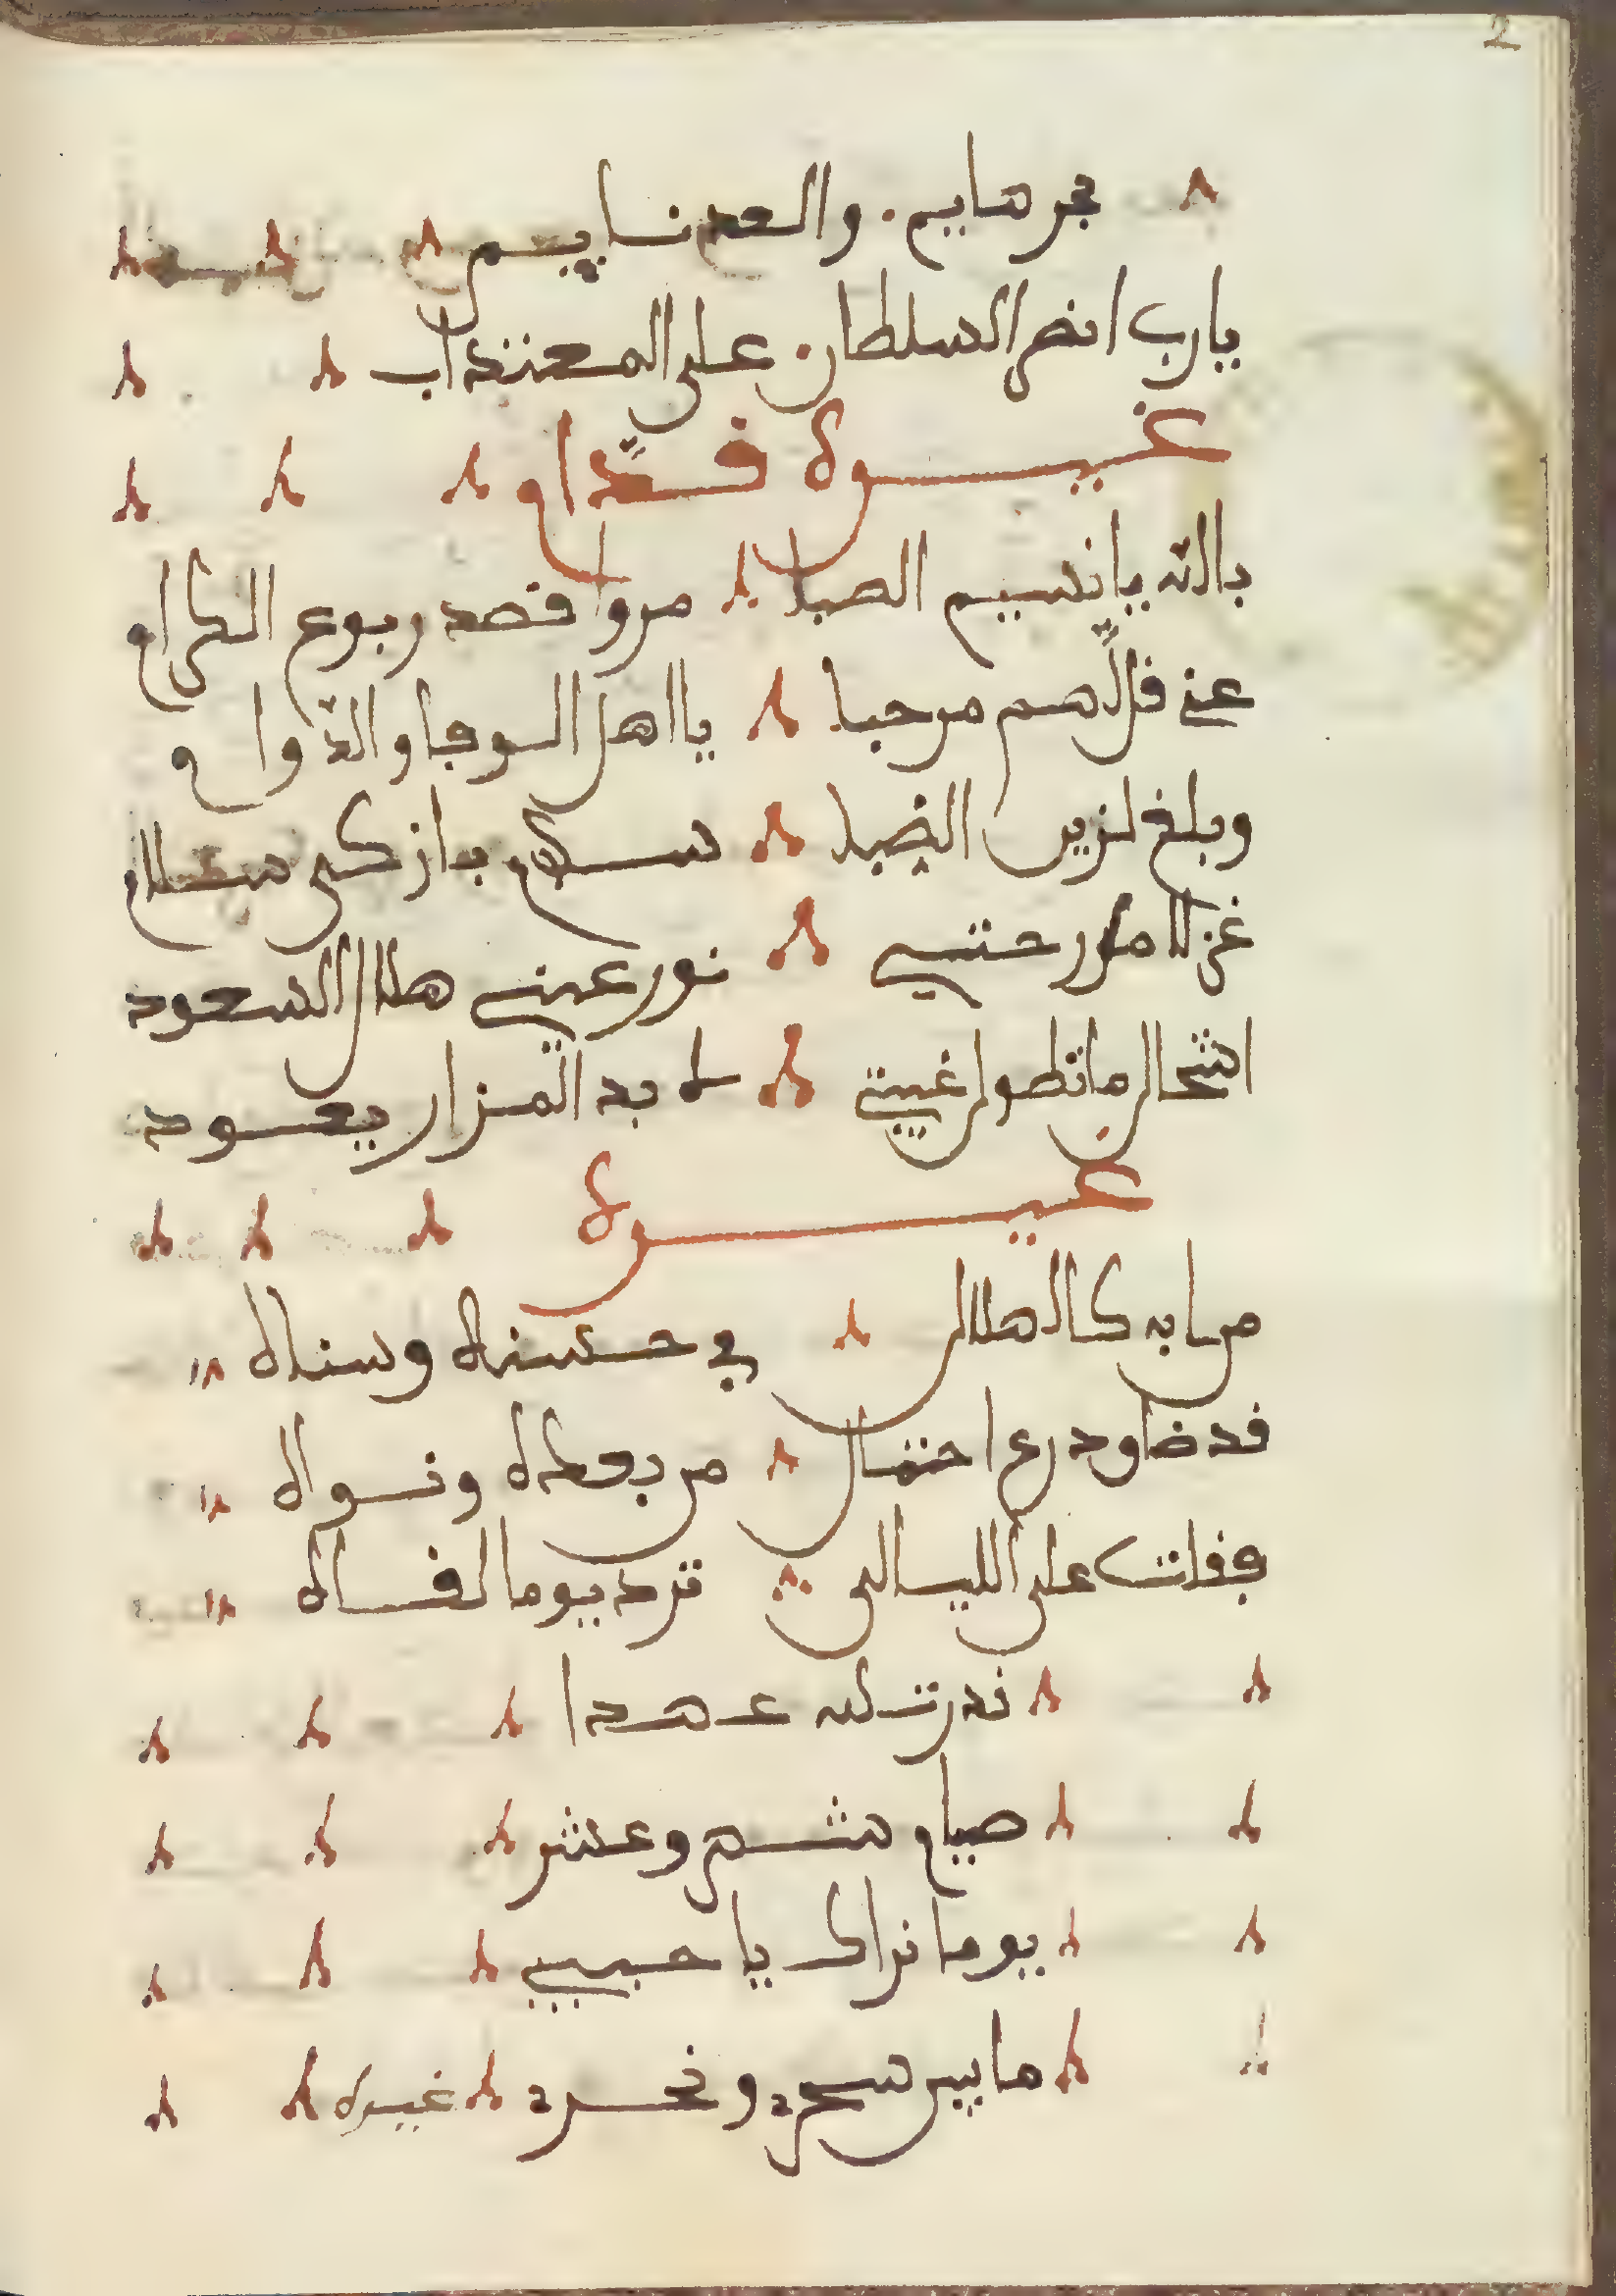 2
فجر هايم . والسعد نايم
يارب انصر السلطان على المعتد اب
غيره قدام
بالله يا نسيم الصبا مر واقصد ربوع الكرام
عني قل لهم مرحبا يا اهل الوجا والدوام
وبلغ لزين الضبا سلام بازكى سلام
غزلا م رحتي نور عيني هلال السعود
اشحال ما تطول غيبتي لا بد المزار يعود
غيره
من به كالهلال في حسنه وسناه
قد ضاو درع احتمال من بعده ونواه
فقلت على الليالي ترد يوما لقاه
ندرت لله عهدا
صيام شهر وعشر
يوما نراك يا حبيبي
ما بين سحر ونحر غيره